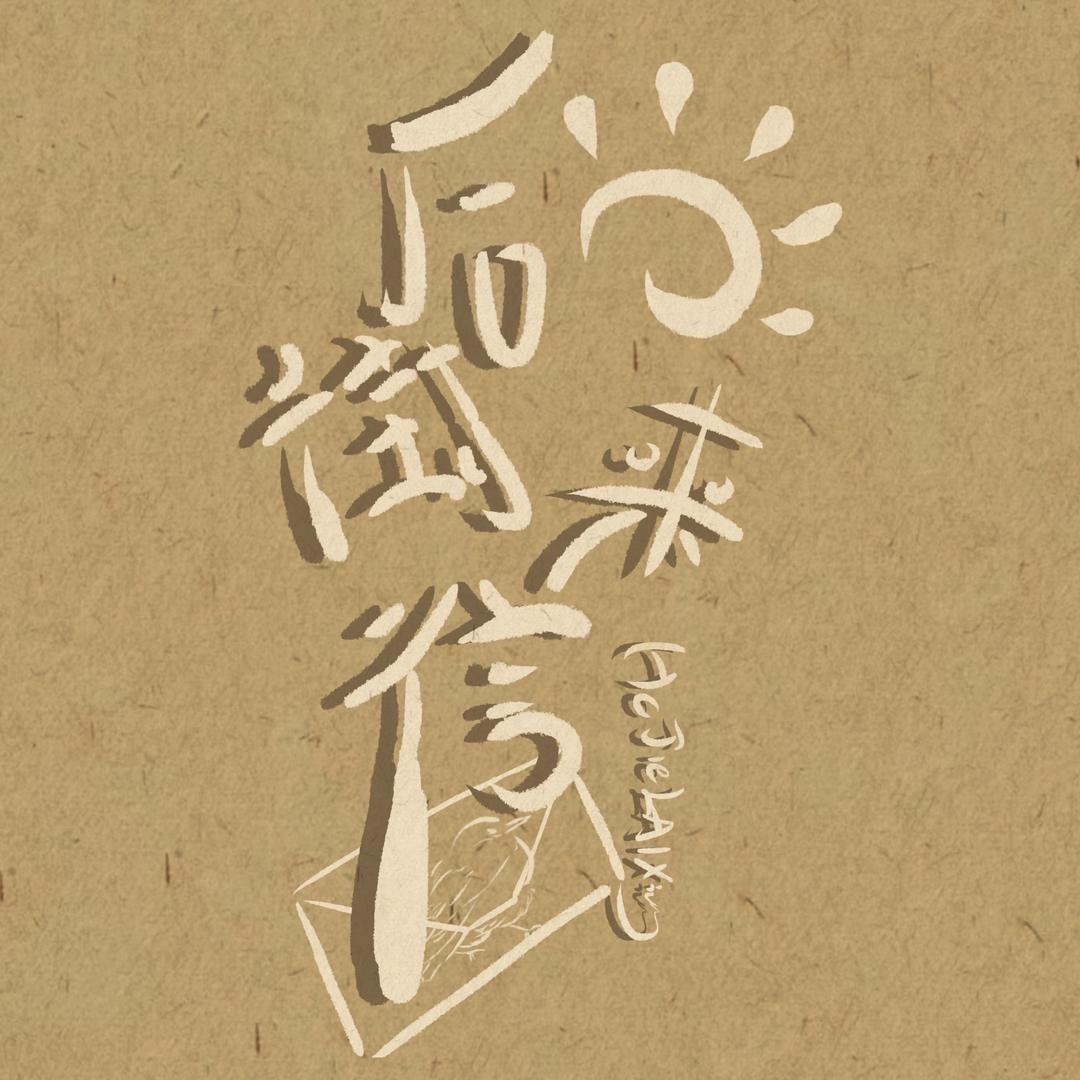 后街来信
HoJieLAIXin